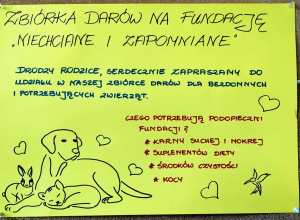 ZBIÓRKA DARÓW NA FUNDACJĘ
„NIECHCIANE I ZAPOMNIANE"
DRODZY RODZICE, SERDECZNIE ZAPRASZAMY DO
UDZIAŁU W NASZEJ ZBIÓRCE DARÓW DLA BEZDOMNYCH
I POTRZEBUJĄCYCH ZWIERZĄT.
CZEGO POTRZEBUJĄ PODOPIECZNI
FUNDACJI?
* KARMY SUCHEJ I MOKREJ
* SUPLEMENTÓW DIETY
* ŚRODKÓW CZYSTOŚCI
* KOCY